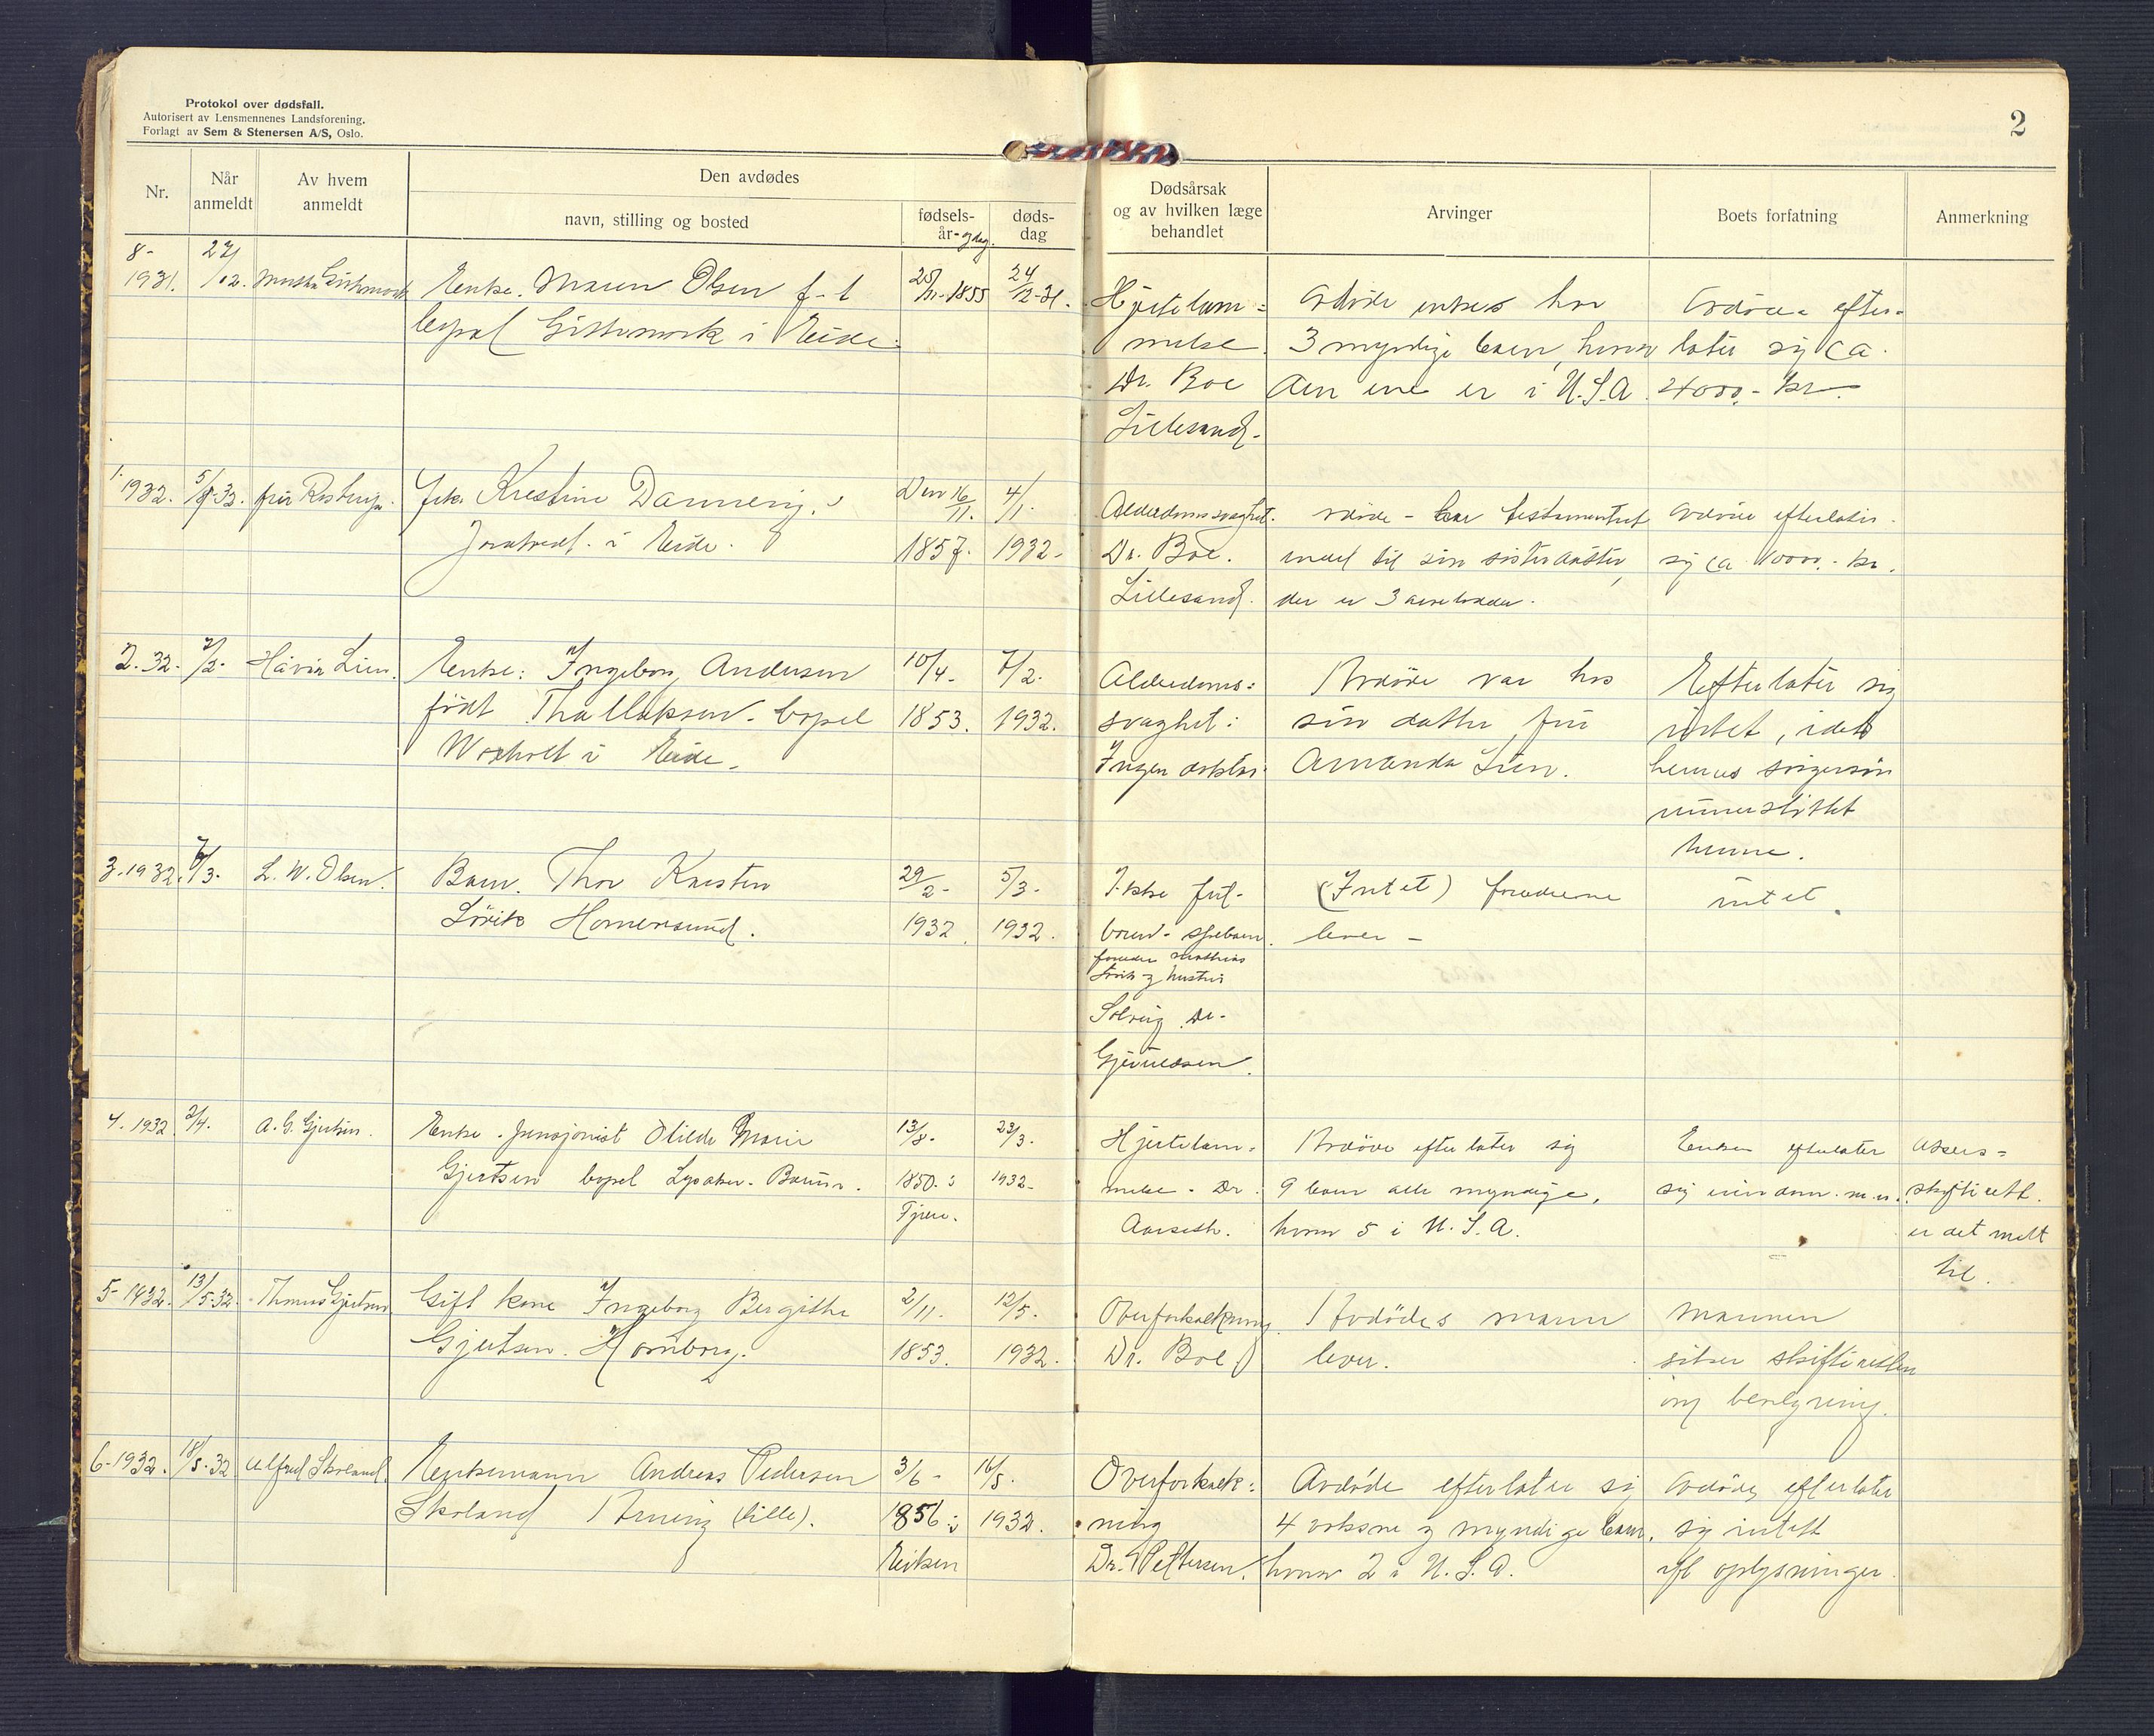 Protokol over dødsfall.
Autorisert av Lensmennenes Landsforening.
Forlagt av Sem & Stenersen A/S, Oslo.
2
Nr.
Når anmeldt
Av hvem anmeldt
Den avdødes
navn, stilling og bosted
fødsels-
år- og dag.
døds-
dag
Dødsårsak
og av hvilken læge
behandlet
Arvinger
Boets forfatning
Anmerkning
8-
1931.
Enke. Maren Olsen
bopel i Eide.
1855
24/12-31.
Hjertelam=
melse.
Dr. Boe
Lillesand.
3 myndige barn, hvorav
den ene er i U.S.A.
later sig ca.
4000,- kr.
1-
1932.
Kristine Dannevig.
i Eide.
Den 16/11.
1857.
4/1.
1932.
Alderdomssvaghet.
Dr. Boe.
Lillesand.
testamentert
til sin søsterdatter,
der er 3
efterlater
sig ca 10000,- kr.
2.32.
7/2.
Håvar Lien.
Enke: Ingeborg Andersen
født Thallaksen. bopel
i Eide.
10/4-
1853.
7/2.
1932.
Alderdoms=
svaghet:
Ingen doktor.
Avdøde var hos
sin datter, fru
Amanda Lien.
Efterlater sig
intet, idet
hennes svigersøn
understøttet
henne.
3.1932.
L. W. Olsen.
Barn. Thor Karsten
Lövik Homersund.
29/2-
1932.
5/3-
1932.
Ikke ful-
boren- spebarn.
foreldre Mathias
Lövik og hustru
Solveig Dr.
(Intet) foreldrene
lever -
intet.
4. 1932
2/4.
A. G. Gjertsen.
Enke. pensjonist Olilde Marie
Gjertsen bopel Lysaker. Bærum.
13/8.
1850. i
23/3.
1932-
Hjertelam=
melse. Dr.
Aarseth.
Avdøde efterlater sig
9 barn alle myndige,
hvorav 5 i U.S.A.
Enken efterlater
sig eiendom. m.v.
skifterett.
er det meldt
til.
5-1932.
13/5-32
Thomas Gjertsen
Gift kone Ingeborg Bergithe
Gjertsen. Homborg.
2/11.
1853.
12/5.
1932.
Overforkalkning.
Dr. Boe
Avdödes mann
lever.
Mannen
skifteretten
om bevilgning.
6-1932.
18/5-32
Alfred Skoland.
Enkemann Andreas Pedersen
Skoland (lille).
3/6-
1856 i
Eiken
16/5.
1932.
Overforkalk:
ning
Dr. Pettersen.
Avdøde efterlater sig
4 voksne og myndige barn.
hvorav 2 i U.S.A.
Avdøde efterlater
sig intet
ifl oplysninger.